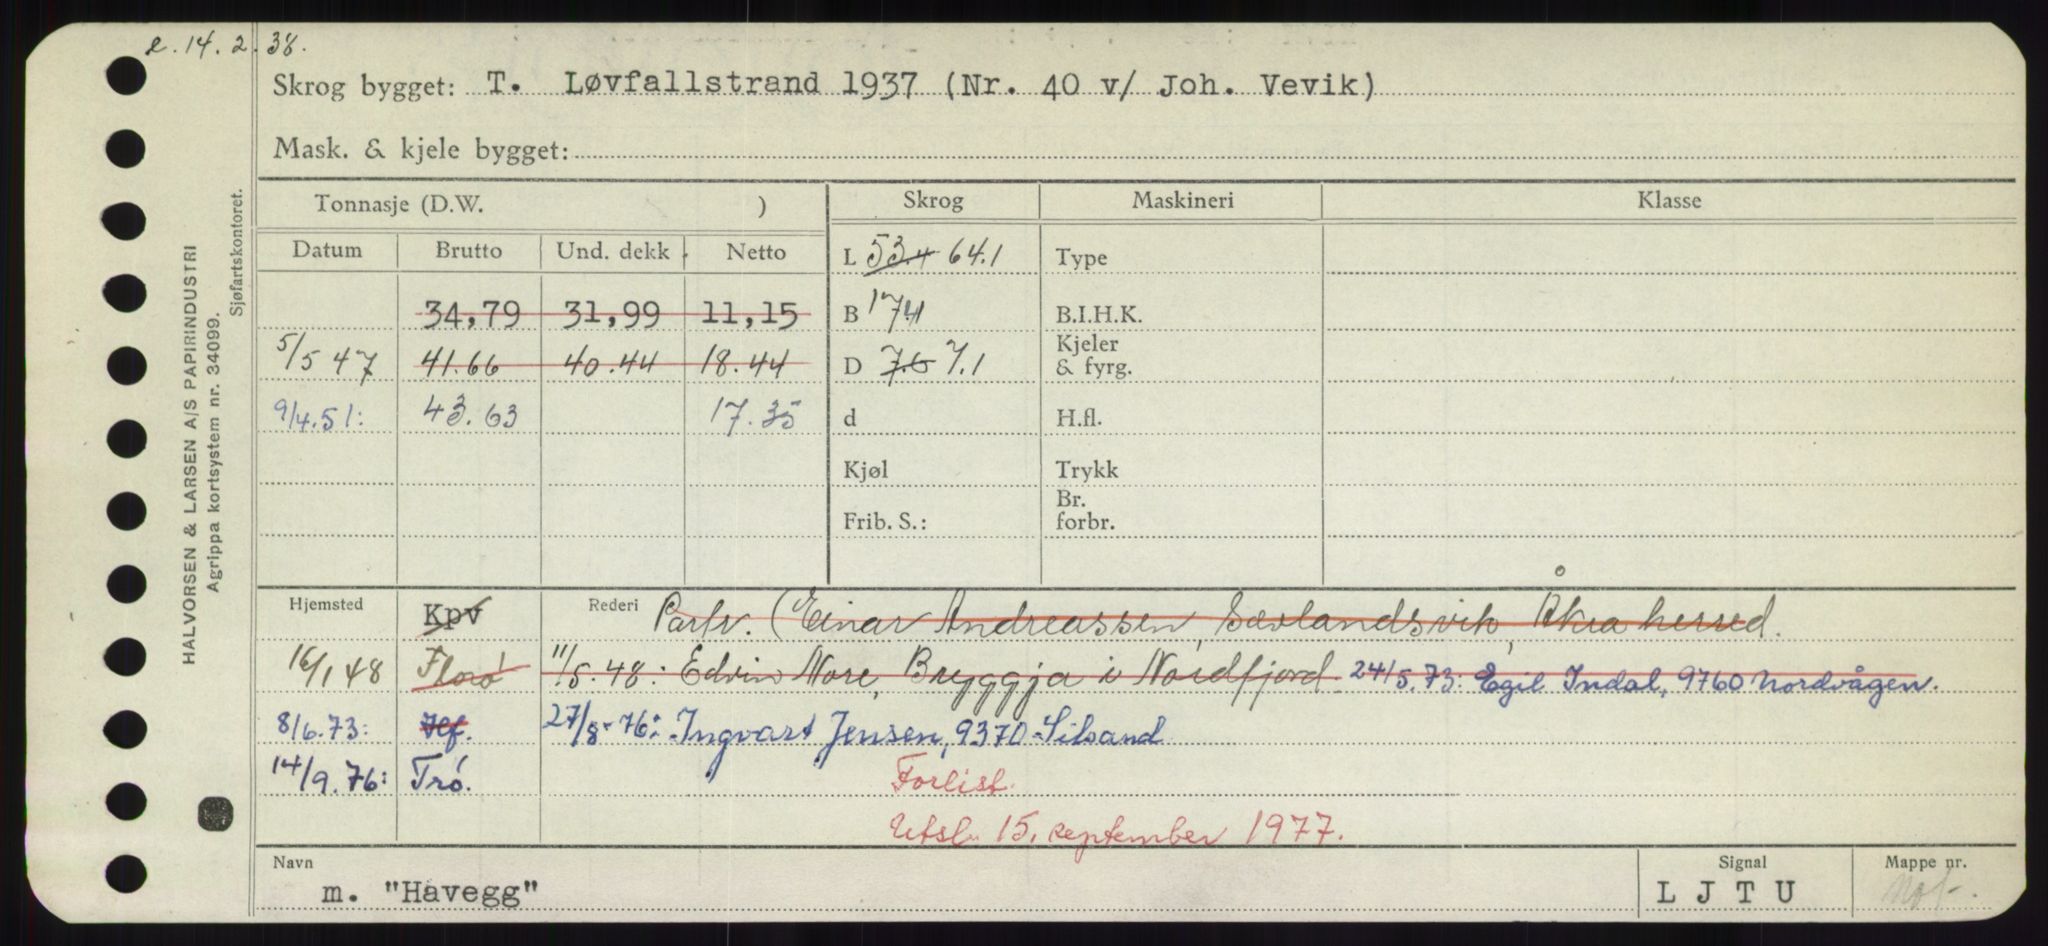 e. 14. 2. 38.
Skrog bygget: T. Løvfallstrand 1937 (Nr. 40 v/ Joh. Vevik)
Mask. & kjele bygget:
HALVORSEN & LARSEN A/S PAPIRINDUSTRI
Agrippa kortsystem nr. 34099.
Sjøfartskontoret.
Tonnasje (D.W. )
Skrog Maskineri Klasse
Datum Brutto Und. dekk Netto
L 53.4 64.1 Type
34,79 31,99 11,15
B 17.4 B.I.H.K.
5/5 47 41.66 40.44 18.44
D 7.6 7.1 Kjeler & fyrg.
9/4.51: 43.63 17.35
d H.fl.
Kjøl Trykk
Frib. S.: Br. forbr.
Hjemsted Kpv Rederi Partr. (Einar Andreassen, Sævlandsvik, Åkra herred.
16/1 48 Florø 11/5.48: Edvin Nore, Bryggja i Nordfjord 24/5.73: Egil Indal, 9760 Nordvågen.
8/6.73: Hf. 27/8-76: Ingvart Jensen, 9370 Silsand
14/9.76: Trø. Forlist.
Utsl. 15. september 1977.
Navn Signal Mappe nr.
m. "Havegg" L J T U